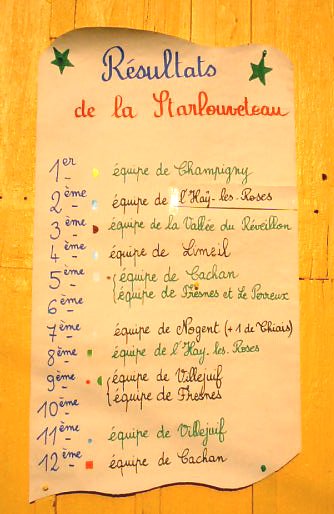 Résultats
de la Starlouveteau
1er équipe de Champigny
2ème équipe de l'Haÿ-les-Roses
3ème équipe de la Vallée du Réveillon
4ème équipe de Limeil
5ème équipe de Cachan
6ème équipe de Fresnes et Le Perreux
7ème équipe de Nogent (+ 1 de Thiais)
8ème équipe de l'Haÿ-les-Roses
9ème équipe de Villejuif
10ème équipe de Fresnes
11ème équipe de Villejuif
12ème équipe de Cachan